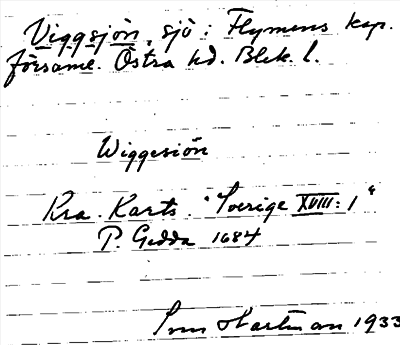 Viggsjön, sjö i Flymens kap.
församl. Östra hd. Blek. l.
Wiggesiön
Kra. Karts. "Sverige XVIII: 1"
P. Gedda 1684
Sven Hartman 1933